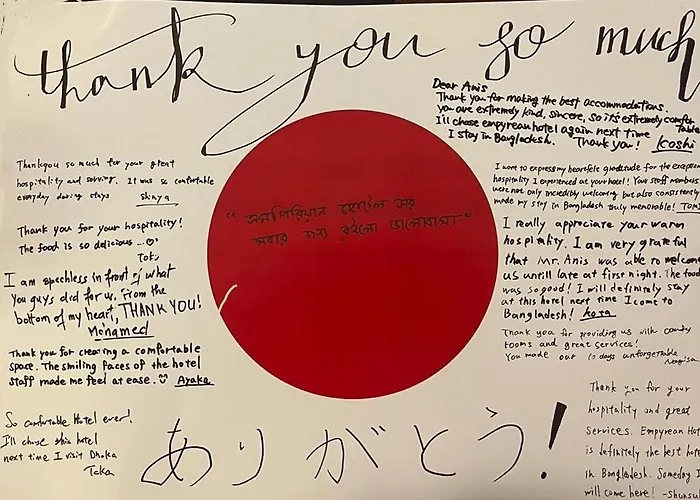 thank you so much
Dear Anis
Thank you for making the best accommodations.
you are extremely kind, sincere, so it's extremely comfor
I'll chose empyrean hotel again next time
I stay in Bangladesh. Thank you! Koshi
Thankyou so much for your great
hospitality and serving. It was so comfortable
everyday during stays shinya
Thank you for your hospitality!
The food is so delicious...
Toko
I am speechless in front of what
you guys did for us. From the
bottom of my heart, THANK YOU!
Mohamed
Thank you for creating a comfortable
space. The smiling faces of the hotel
staff made me feel at ease. Ayaka
So comfortable Hotel ever!
I'll chose this hotel
next time I visit Dhaka
Taka
"এমপিরিয়ান হোটেল এর
সবার জন্য রইলো ভালোবাসা"
I want to express my heartfelt gratitude for the exception
hospitality I experienced at your hotel! Your staff members
were not only incredibly welcoming but also consistently
made my stay in Bangladesh truly memorable!
I really appreciate your warm
hospitality. I am very grateful
that Mr. Anis was able to welcom
us until late at first night. The food
was so good! I will definitely stay
at this hotel next time I come to
Bangladesh! kota
Thank you for providing us with comfy
rooms and great services!
You made our 10 days unforgettable
Thank you for your
hospitality and great
services. Empyrean Hot
is definitely the best hote
in Bangladesh. Someday I
will come here! -shunsu
ありがとう!